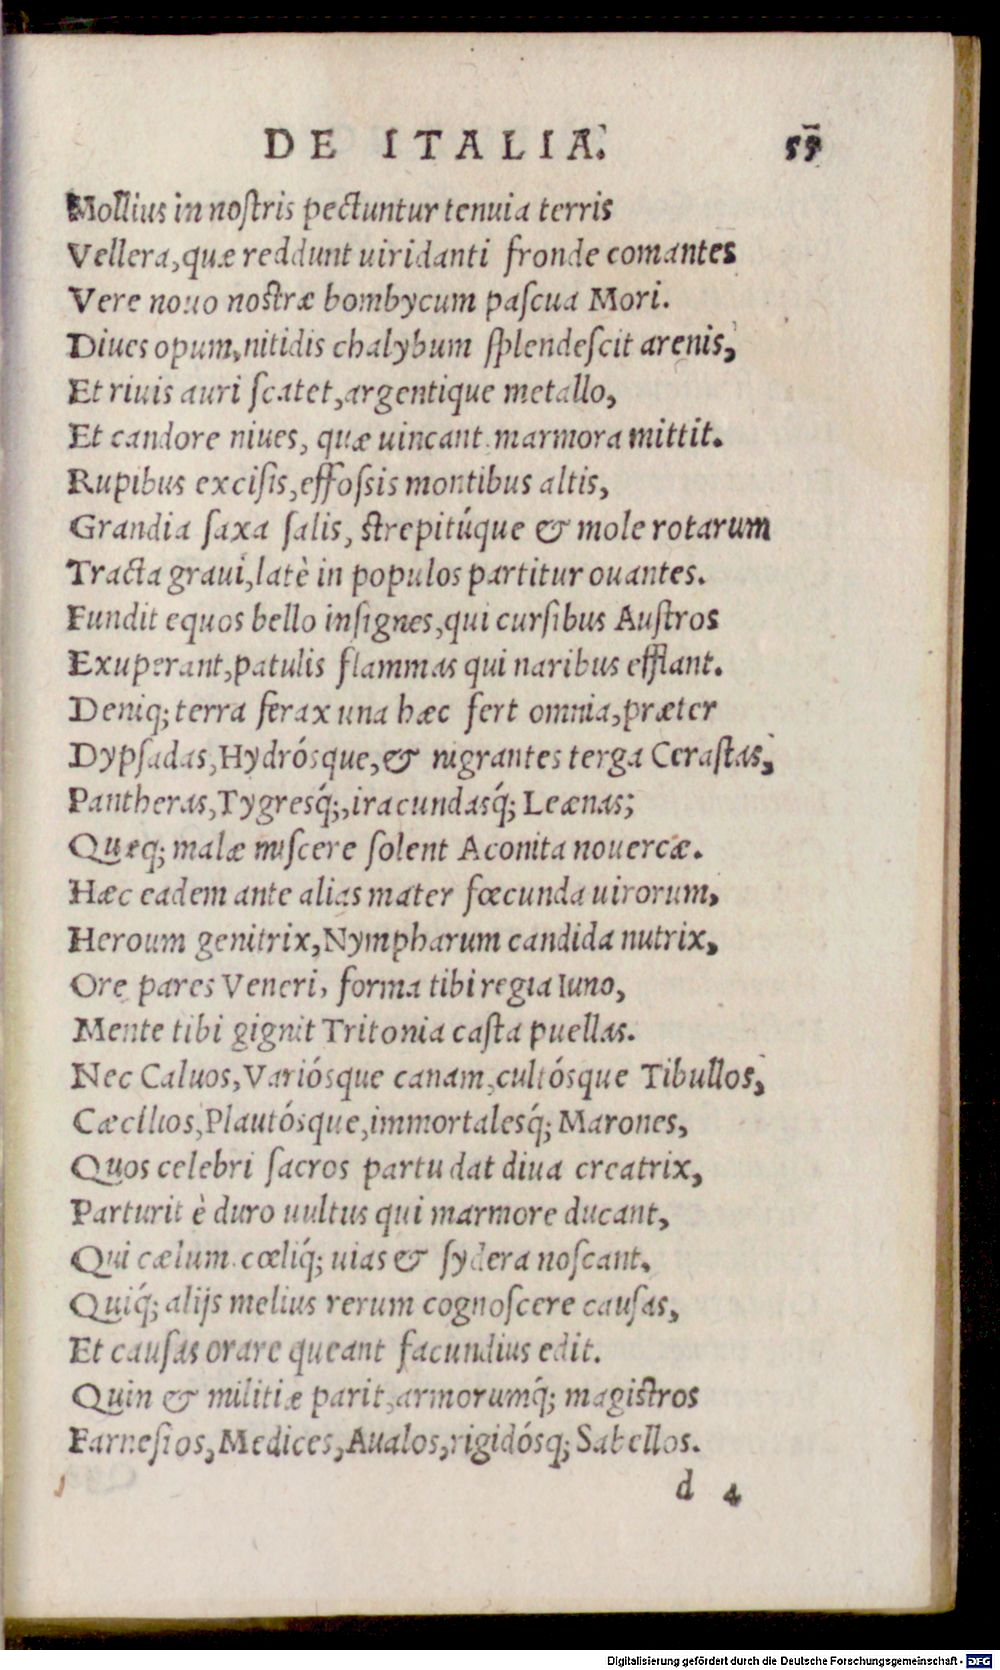 DE ITALIA. 55
Mollius in nostris pectuntur tenuia terris
Vellera, quæ reddunt uiridanti fronde comantes
Vere nouo nostræ bombycum pascua Mori.
Diues opum, nitidis chalybum splendescit arenis,
Et riuis auri scatet, argentique metallo,
Et candore niues, quæ uincant marmora mittit.
Rupibus excisis, effossis montibus altis,
Grandia saxa salis, strepitúque & mole rotarum
Tracta graui, latè in populos partitur ouantes.
Fundit equos bello insignes, qui cursibus Austros
Exuperant, patulis flammas qui naribus efflant.
Deniq; terra ferax una hæc fert omnia, præter
Dypsadas, Hydrósque, & nigrantes terga Cerastas,
Pantheras, Tygresq́;, iracundasq́; Leænas;
Quæq; malæ miscere solent Aconita nouercæ.
Hæc eadem ante alias mater fœcunda uirorum,
Heroum genitrix, Nympharum candida nutrix,
Ore pares Veneri, forma tibi regia Iuno,
Mente tibi gignit Tritonia casta puellas.
Nec Caluos, Variósque canam, cultósque Tibullos,
Cæcilios, Plautósque, immortalesq́; Marones,
Quos celebri sacros partu dat diua creatrix,
Parturit è duro uultus qui marmore ducant,
Qui cælum. cœliq́; uias & sydera noscant,
Quiq́; alijs melius rerum cognoscere causas,
Et causas orare queant facundius edit.
Quin & militiæ parit, armorumq́; magistros
Farnesios, Medices, Aualos, rigidósq; Sabellos.
d 4
Digitalisierung gefördert durch die Deutsche Forschungsgemeinschaft - DFG